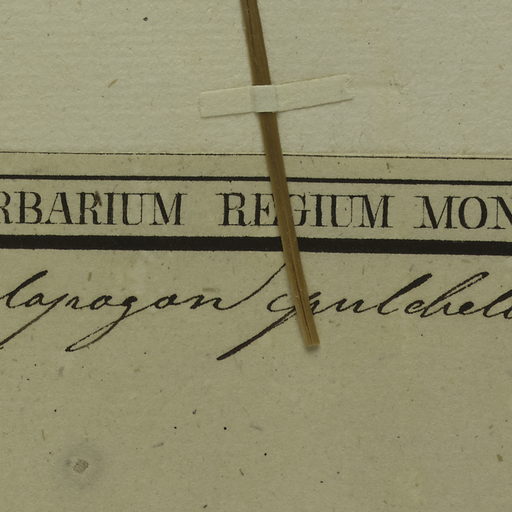 RBARIUM REGIUM MON
lapogon pulchell